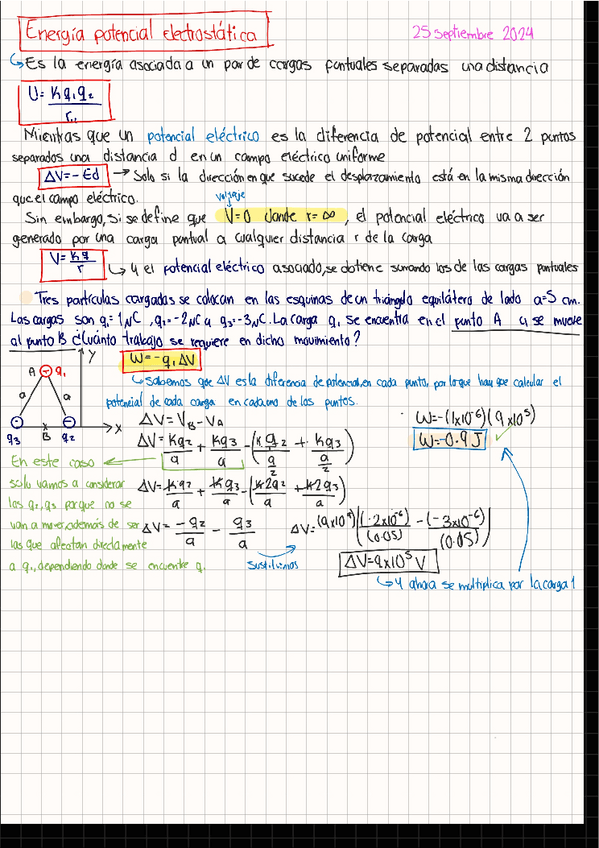 Energía potencial electrostática
25 septiembre 2024
Es la energía asociada a un par de cargas puntuales separadas una distancia
U = kq₁q₂ / r₁₂
Mientras que un potencial eléctrico es la diferencia de potencial entre 2 puntos
separados una distancia d en un campo eléctrico uniforme
ΔV = -Ed → Solo si la dirección en que sucede el desplazamiento está en la misma dirección
que el campo eléctrico.
voltaje
Sin embargo, si se define que V=0 donde r=∞, el potencial eléctrico va a ser
generado por una carga puntual a cualquier distancia r de la carga
V = kq / r
y el potencial eléctrico asociado, se obtiene sumando los de las cargas puntuales
Tres partículas cargadas se colocan en las esquinas de un triángulo equilátero de lado a=5 cm.
Las cargas son q₁=1μC, q₂=-2μC q₃=-3μC. La carga q₁ se encuentra en el punto A y se mueve
al punto B ¿Cuánto trabajo se requiere en dicho movimiento?
W = -q₁ΔV
Sabemos que ΔV es la diferencia de potencial en cada punto, por lo que hay que calcular el
potencial de cada carga en cada uno de los puntos.
y
A q₁
a a
q₃ B q₂ x
ΔV = V_B - V_A
ΔV = kq₂/a + kq₃/a - (kq₂/(a/2) + kq₃/(a/2))
ΔV = kq₂/a + kq₃/a - (k2q₂/a + k2q₃/a)
ΔV = -q₂/a - q₃/a
En este caso
solo vamos a considerar
las q₂, q₃ porque no se
van a mover, además de ser
las que afectan directamente
a q₁, dependiendo donde se encuentre q₁
Sustituimos
ΔV = (9x10⁹) |(-2x10⁻⁶)/(0.05) - (-3x10⁻⁶)/(0.05)|
ΔV = 9x10⁵ V
y ahora se multiplica por la carga 1
W = -(1x10⁻⁶)(9x10⁵)
W = -0.9 J